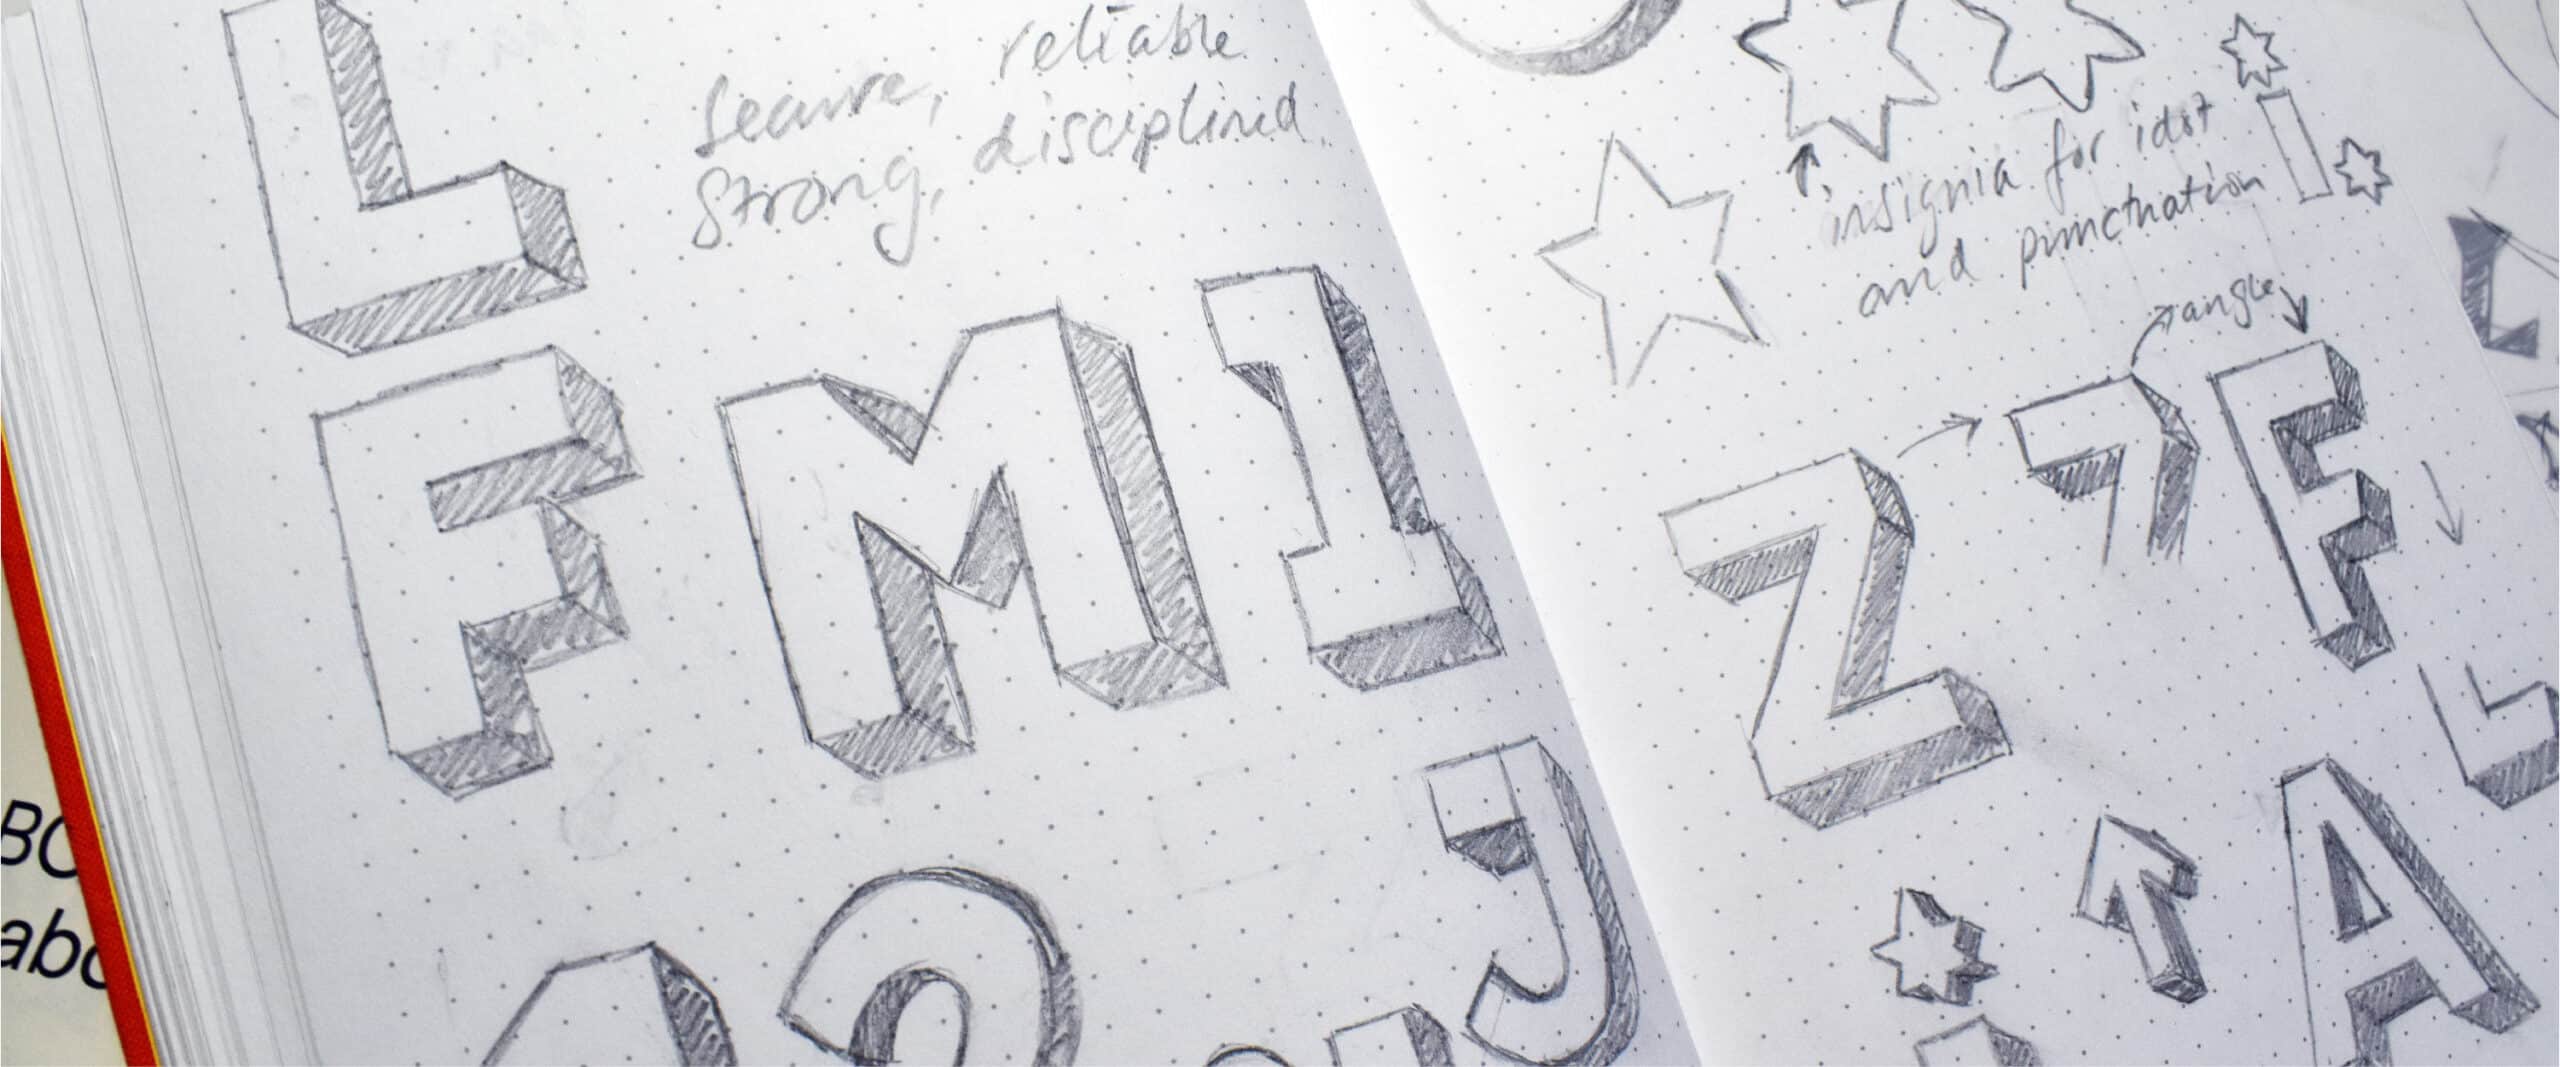 L
secure, reliable
strong, disciplined
F M 1
J
insignia for idot
and punctuation
i
angle
Z 7 F
A
L
BC
abc